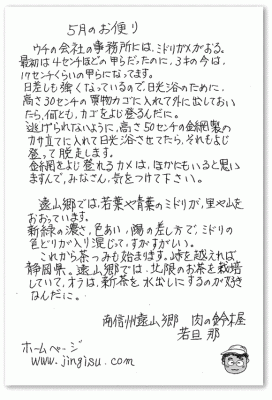 5月のお便り
ウチの会社の事務所には、ミドリガメがおる。
最初は4センチほどの甲らだったのに、3年の今は、
17センチくらいの甲らになってます。
日差しも強くなっているので、日光浴のために、
高さ30センチの買物カゴに入れて外に出しておい
たら、何とも、カゴをよじ登るんだに。
逃げられないように、高さ50センチの金網製の
カサ立てに入れて日光浴させてたら、それもよじ
登って脱走します。
金網をよじ登れるカメは、ほかにもいると思い
ますんで、みなさん、気をつけて下さい。
遠山郷では、若葉や青葉のミドリが、里や山を
おおっています。
新緑の濃さ、色あい、陽の差し方で、ミドリの
色どりが入り混じって、すがすがしい。
これから茶つみも始まります。峠を越えれば
静岡県。遠山郷では、北限のお茶を栽培
していて、オラは、新茶を水出しにするのが好き
なんだに。
南信州遠山郷 肉の鈴木屋
若旦那
ホームページ
www.jingisu.com